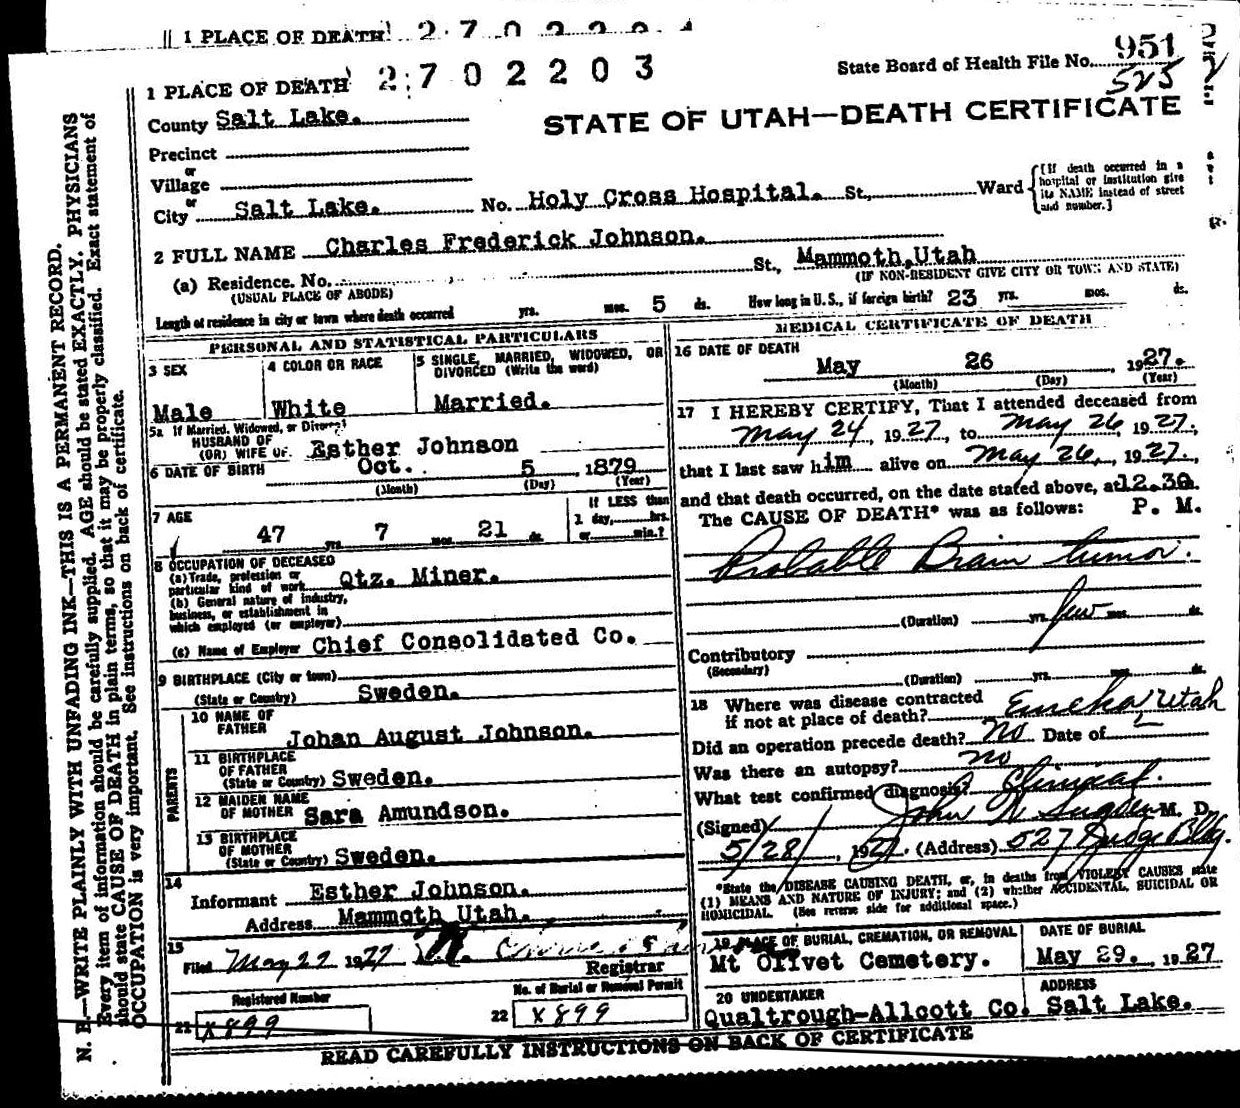 1 PLACE OF DEATH
1 PLACE OF DEATH 2702203
State Board of Health File No. 951
525
County Salt Lake.
STATE OF UTAH—DEATH CERTIFICATE
Precinct
or
Village
or
City Salt Lake. No. Holy Cross Hospital. St., Ward
[If death occurred in a
hospital or institution give
its NAME instead of street
and number.]
2 FULL NAME Charles Frederick Johnson.
(a) Residence. No. St., Mammoth, Utah
(USUAL PLACE OF ABODE) (IF NON-RESIDENT GIVE CITY OR TOWN AND STATE)
Length of residence in city or town where death occurred yrs. mos. 5 ds. How long in U. S., if foreign birth? 23 yrs. mos. ds.
PERSONAL AND STATISTICAL PARTICULARS
3 SEX
Male
4 COLOR OR RACE
White
5 SINGLE, MARRIED, WIDOWED, OR
DIVORCED (Write the word)
Married.
5a If Married, Widowed, or Divorced
HUSBAND OF
(OR) WIFE OF Esther Johnson
6 DATE OF BIRTH Oct. 5, 1879
(Month) (Day) (Year)
7 AGE
47 yrs. 7 mos. 21 ds.
If LESS than
1 day, hrs.
or min.?
8 OCCUPATION OF DECEASED
(a) Trade, profession or
particular kind of work Qtz. Miner.
(b) General nature of industry,
business, or establishment in
which employed (or employer)
(c) Name of Employer Chief Consolidated Co.
9 BIRTHPLACE (City or town)
(State or Country) Sweden.
PARENTS
10 NAME OF
FATHER Johan August Johnson.
11 BIRTHPLACE
OF FATHER
(State or Country) Sweden.
12 MAIDEN NAME
OF MOTHER Sara Amundson.
13 BIRTHPLACE
OF MOTHER
(State or Country) Sweden.
14
Informant Esther Johnson.
Address Mammoth Utah.
15
Filed May 27 1927
Registrar
Registered Number
21 X899
No. of Burial or Removal Permit
22 X899
MEDICAL CERTIFICATE OF DEATH
16 DATE OF DEATH
May 26, 1927.
(Month) (Day) (Year)
17 I HEREBY CERTIFY, That I attended deceased from
May 24, 1927, to May 26, 1927.
that I last saw him alive on May 26, 1927.,
and that death occurred, on the date stated above, at 12.30.
The CAUSE OF DEATH* was as follows: P. M.
Probable Brain tumor.
(Duration) yrs. few mos. ds.
Contributory
(Secondary)
(Duration) yrs. mos. ds.
18 Where was disease contracted
if not at place of death? Eureka, Utah
Did an operation precede death? No Date of
Was there an autopsy? no
What test confirmed diagnosis? Clinical.
(Signed) John N. M. D.
5/28/, 1927. (Address) 527 Judge Bldg.
*State the DISEASE CAUSING DEATH, or, in deaths from VIOLENT CAUSES state
(1) MEANS AND NATURE OF INJURY; and (2) whether ACCIDENTAL, SUICIDAL OR
HOMICIDAL. (See reverse side for additional space.)
19 PLACE OF BURIAL, CREMATION, OR REMOVAL
Mt Olivet Cemetery.
DATE OF BURIAL
May 29., 1927
20 UNDERTAKER
Qualtrough-Allcott Co.
ADDRESS
Salt Lake.
READ CAREFULLY INSTRUCTIONS ON BACK OF CERTIFICATE
N. B.—WRITE PLAINLY WITH UNFADING INK—THIS IS A PERMANENT RECORD.
Every item of information should be carefully supplied. AGE should be stated EXACTLY. PHYSICIANS
should state CAUSE OF DEATH in plain terms, so that it may be properly classified. Exact statement of
OCCUPATION is very important. See instructions on back of certificate.